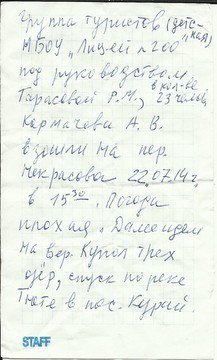 группа туристов (детс-
кая)
МБОУ "Лицей № 200"
под руководством
Тарасовой Р.М., в кол-ве
23 челов.
Кормачева А. В.
взошли на пер.
Некрасова 22.07.14г.
в 15³⁰, Погода
плохая. Далее идем
на вер. Купол трех
озер, спуск по реке
Тюте в пос. Курай.
STAFF